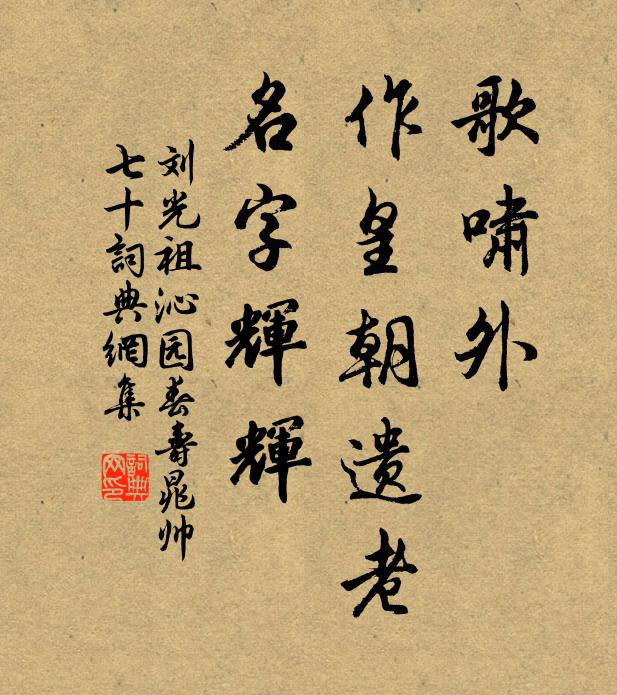 歌嘯外
作皇朝遗老
名字輝輝
刘光祖沁园春壽晁帅
七十詞典網集
詞典网印